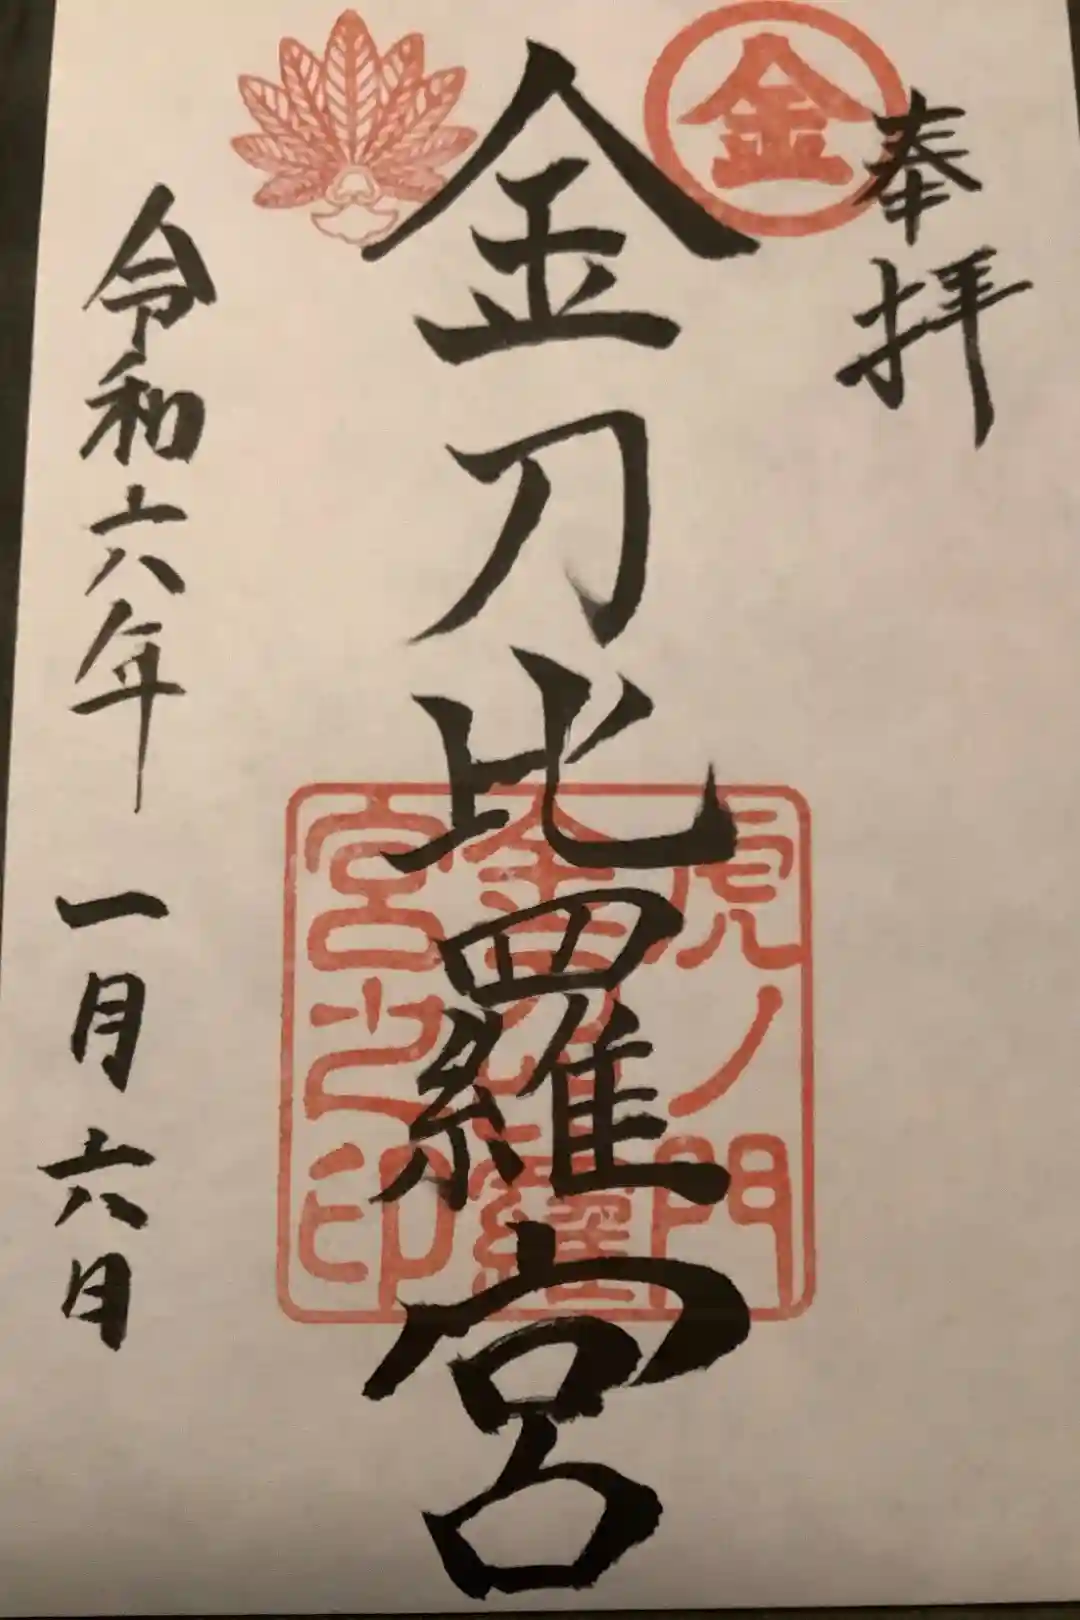 奉拝
金
金刀比羅宮
虎ノ門
金刀比羅
宮之印
令和六年 一月六日